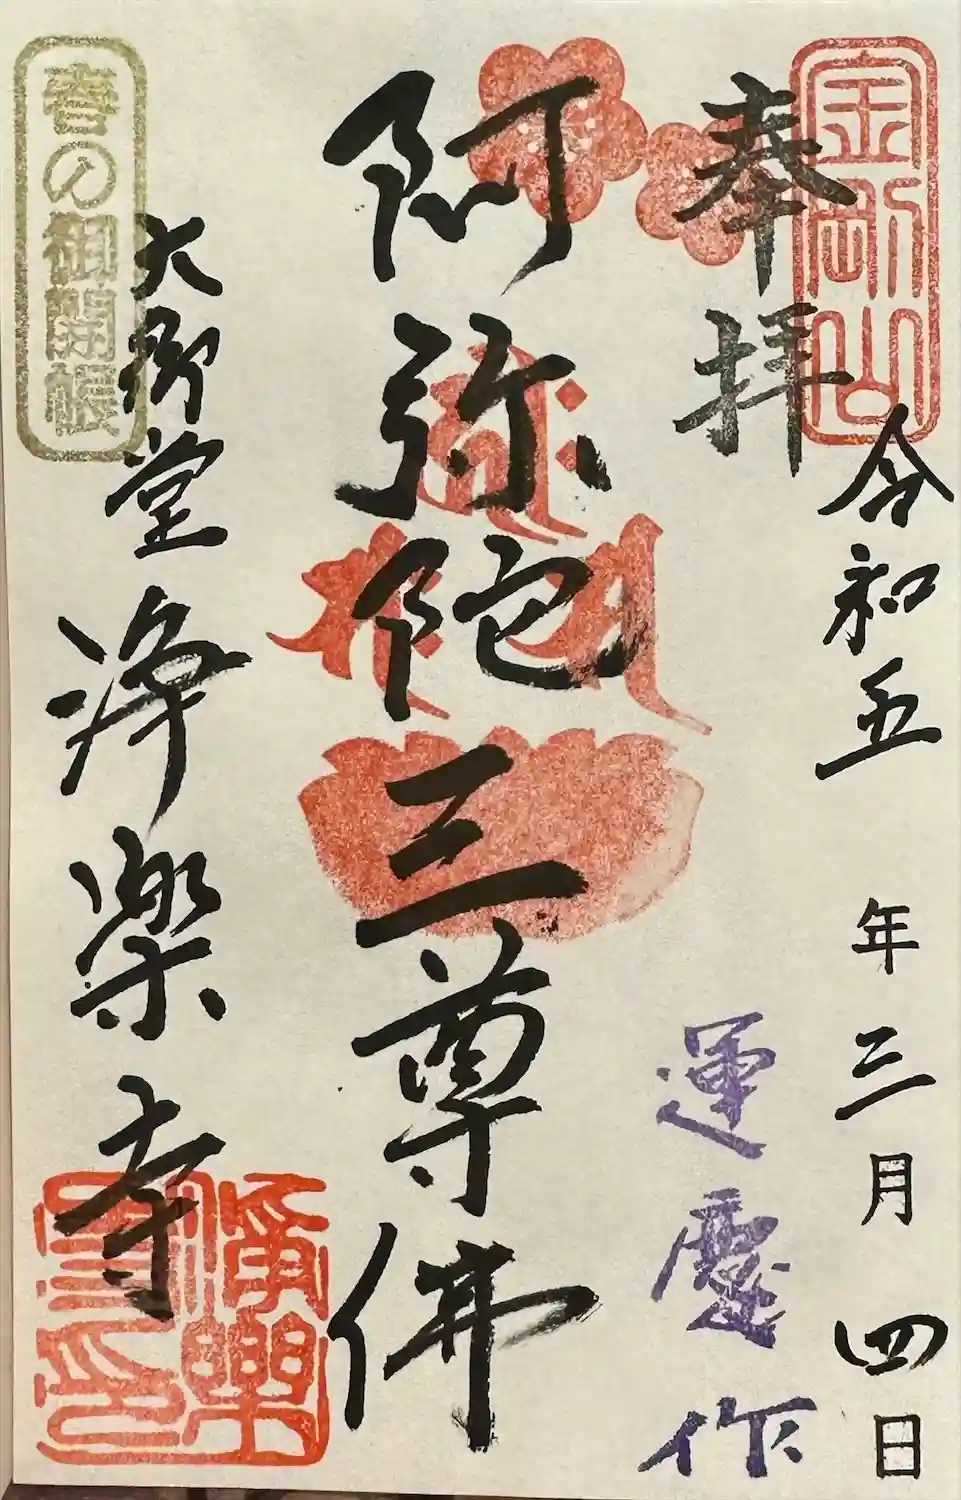 金剛山
令和五年三月四日
奉拝
運慶作
阿弥陀三尊佛
大御堂
浄楽寺
春の御開帳